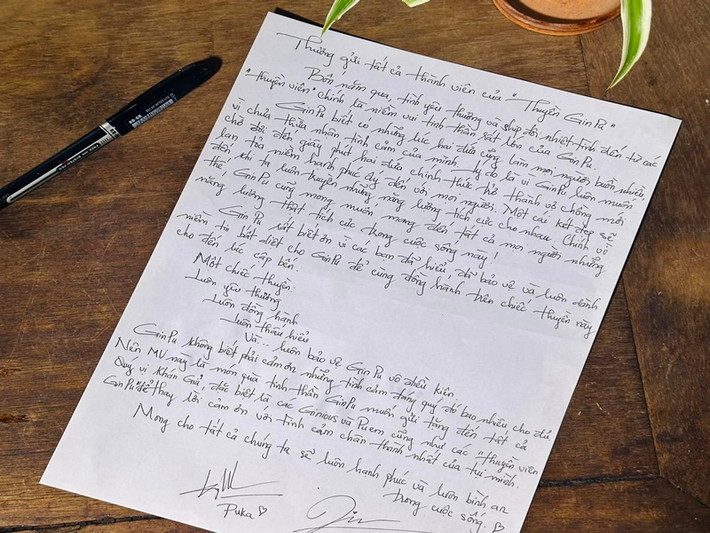 Thương gửi tất cả thành viên của "Thuyền GinPu"
Bốn năm qua, tình yêu thương và giúp đỡ nhiệt tình đến từ các
"thuyền viên" chính là niềm vui tinh thần rất lớn của GinPu.
GinPu biết có những lúc hai đứa cũng làm mọi người buồn nhiều
vì chưa thừa nhận tình cảm của mình. Lý do là vì GinPu luôn muốn
chờ đợi đến giây phút hai đứa chính thức trở thành vợ chồng mới
lan tỏa niềm hạnh phúc ấy đến với mọi người. Một cái kết đẹp sẽ
đến khi ta luôn truyền những năng lượng tích cực cho nhau. Chính vì
thế! GinPu cũng mong muốn mang đến tất cả mọi người những
năng lượng thật tích cực trong cuộc sống này!
GinPu rất biết ơn vì các bạn đã hiểu, đã bảo vệ và luôn dành
niềm tin bất diệt cho GinPu để cùng đồng hành trên chiếc thuyền này
cho đến lúc cập bến.
Một chiếc thuyền:
Luôn yêu thương
Luôn đồng hành
Luôn thấu hiểu
Và... luôn bảo vệ GinPu vô điều kiện.
GinPu không biết phải cảm ơn những tình cảm đáng quý đó bao nhiêu cho đủ
Nên MV này là món quà tinh thần GinPu muốn gửi tặng đến tất cả
Quý vị Khán Giả, đặc biệt là các Ginious và Puem cũng như các "thuyền viên
GinPu" để thay lời cảm ơn với tình cảm chân thành nhất của tụi mình.
Mong cho tất cả chúng ta sẽ luôn hạnh phúc và luôn bình an
trong cuộc sống.
Puka